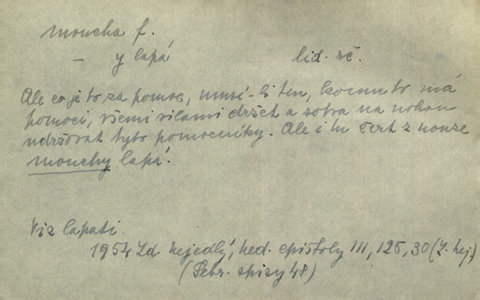 moucha f.
– y lapá lid. rč.
Ale co je to za pomoc, musí-li ten, komu to má
pomoci, všemi silami držet a sotva na nohou
udržovat tyto pomocníky. Ale i tu čert z nouze
mouchy lapá.
Viz lapati
1954 Zd. Nejedlý, Ned. epištoly III, 125, 30 (Z. Nej.)
(Sebr. spisy 48)